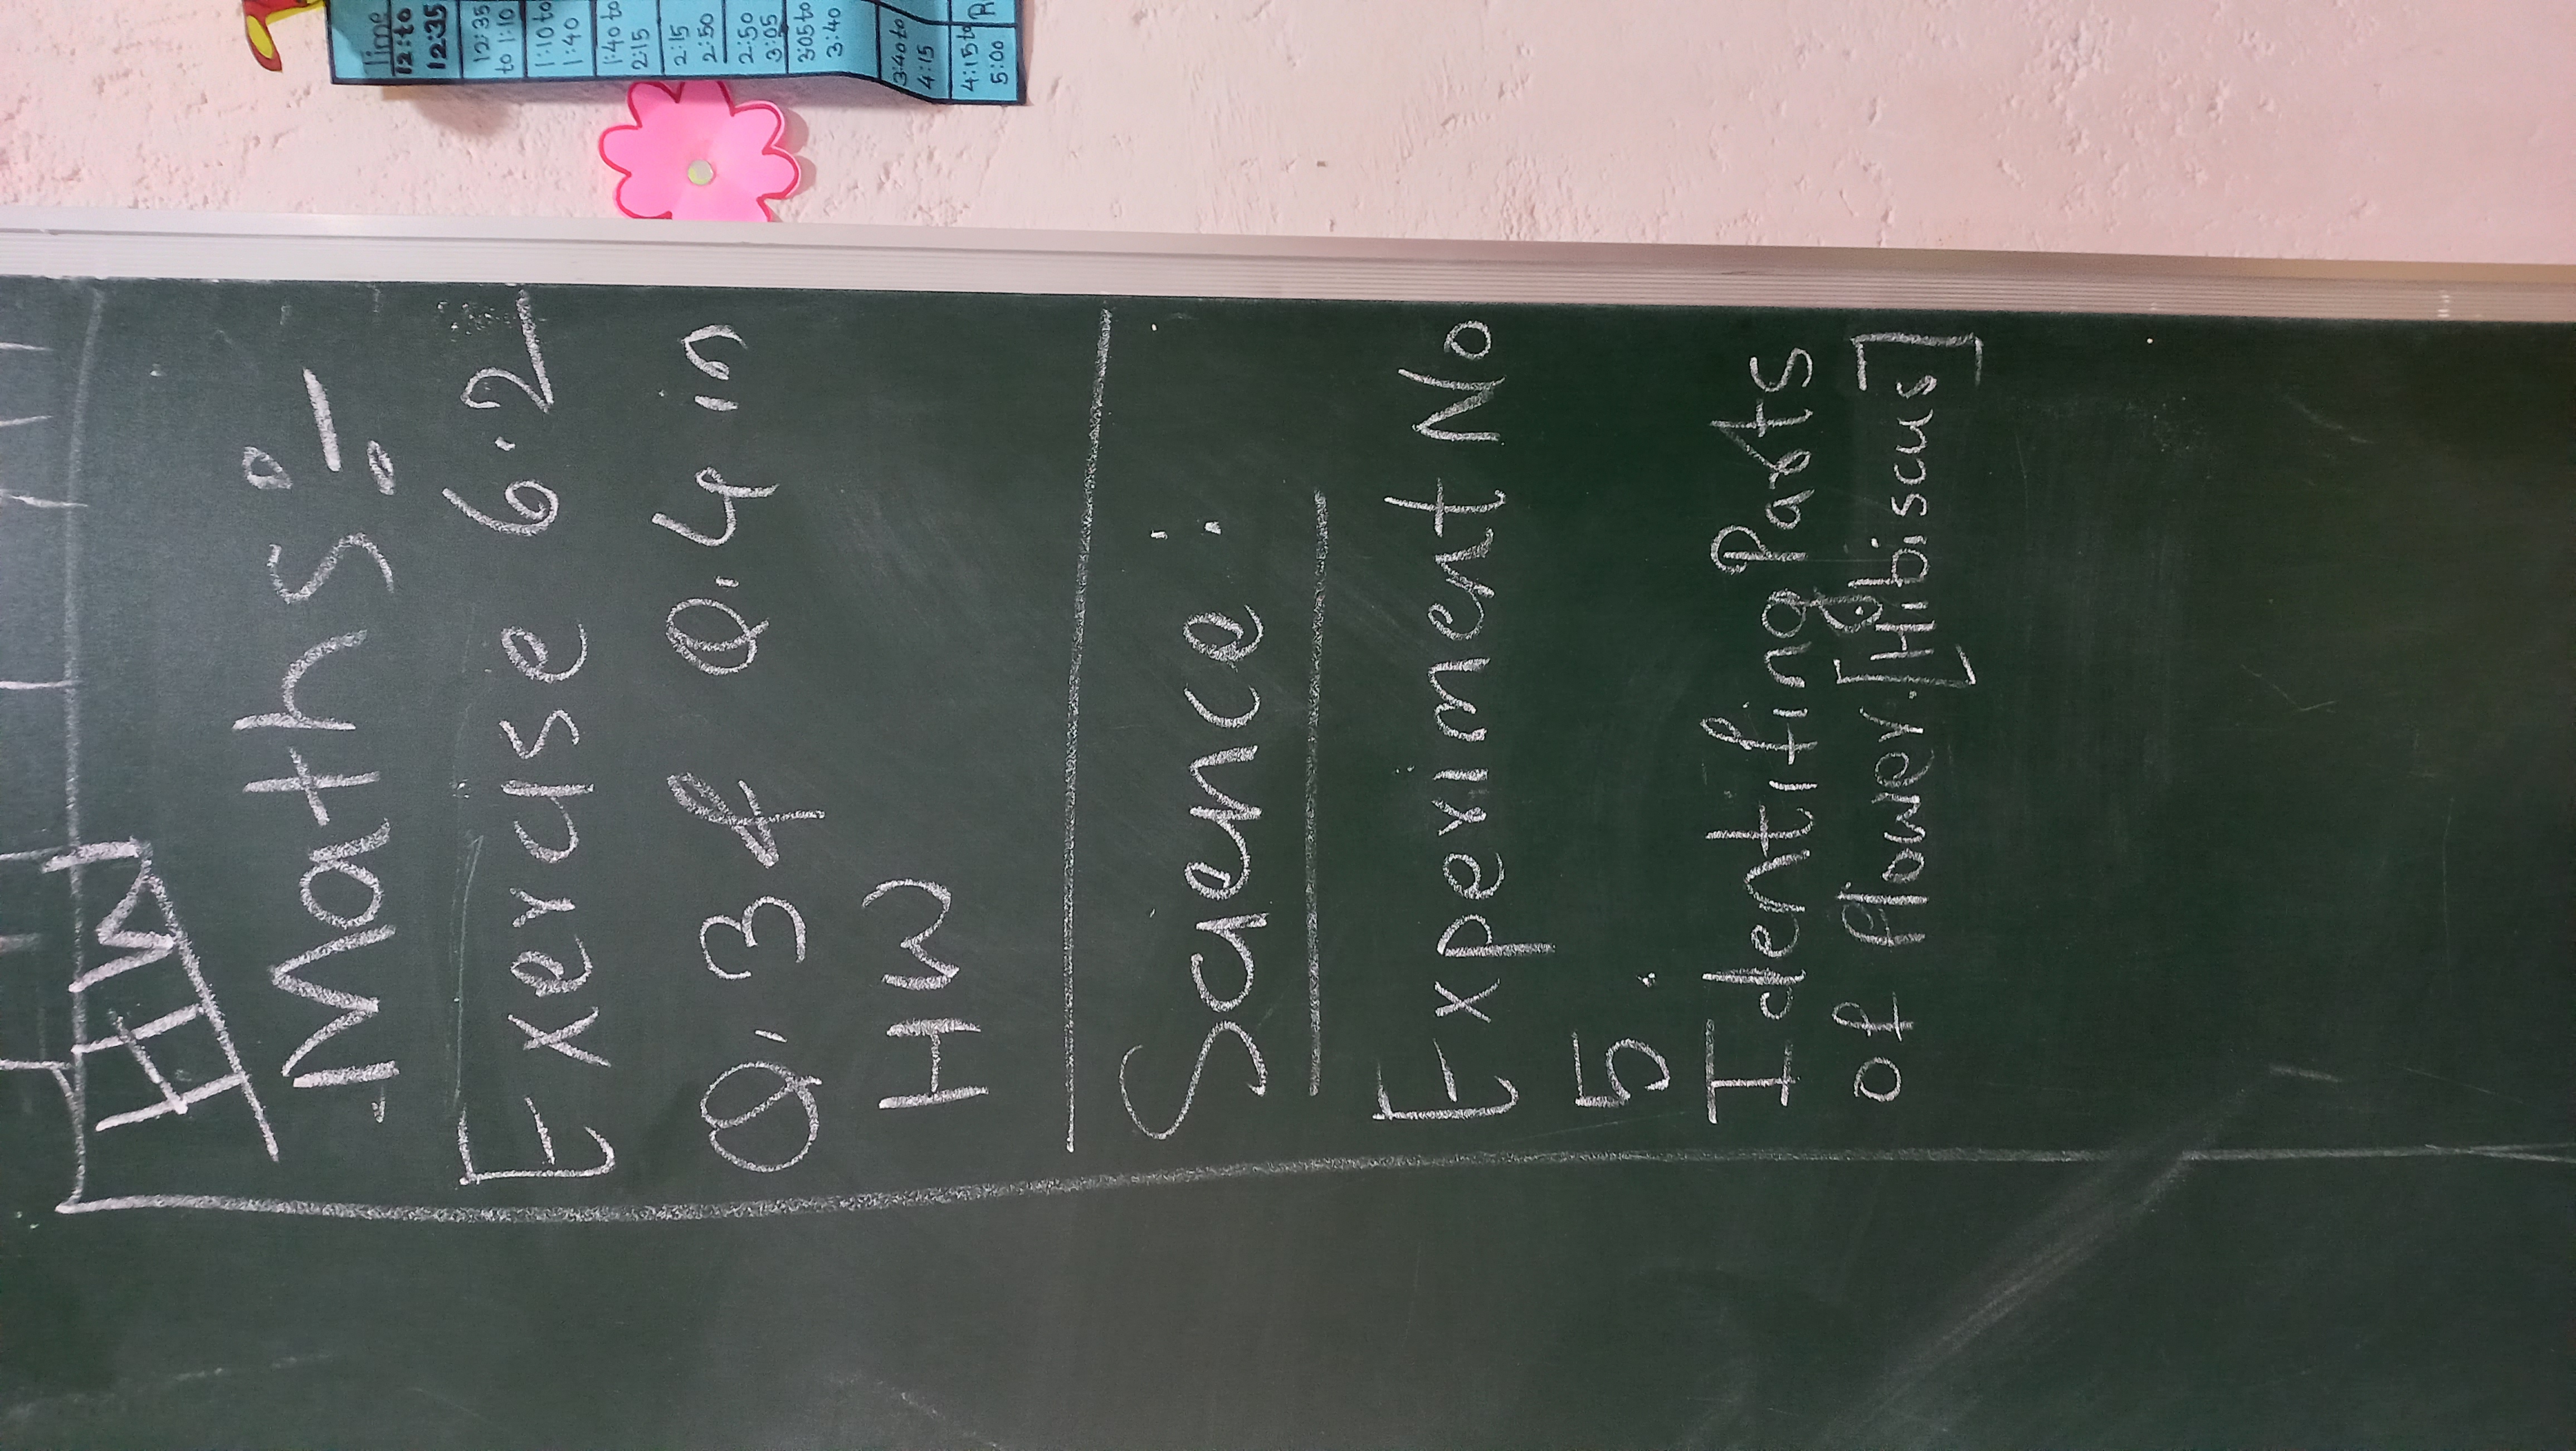 Time
12:to
12:35
12:35
to 1:10
1:10 to
1:40
1:40 to
2:15
2:15
2:50
2:50
3:05
3:05 to
3:40
3:40 to
4:15
4:15 to
5:00
R
HW
Maths :-
Exercise 6.2
Q. 3 & Q. 4 in
HW
Science :
Experiment No
5.
Identifing Parts
of flower.[Hibiscus]